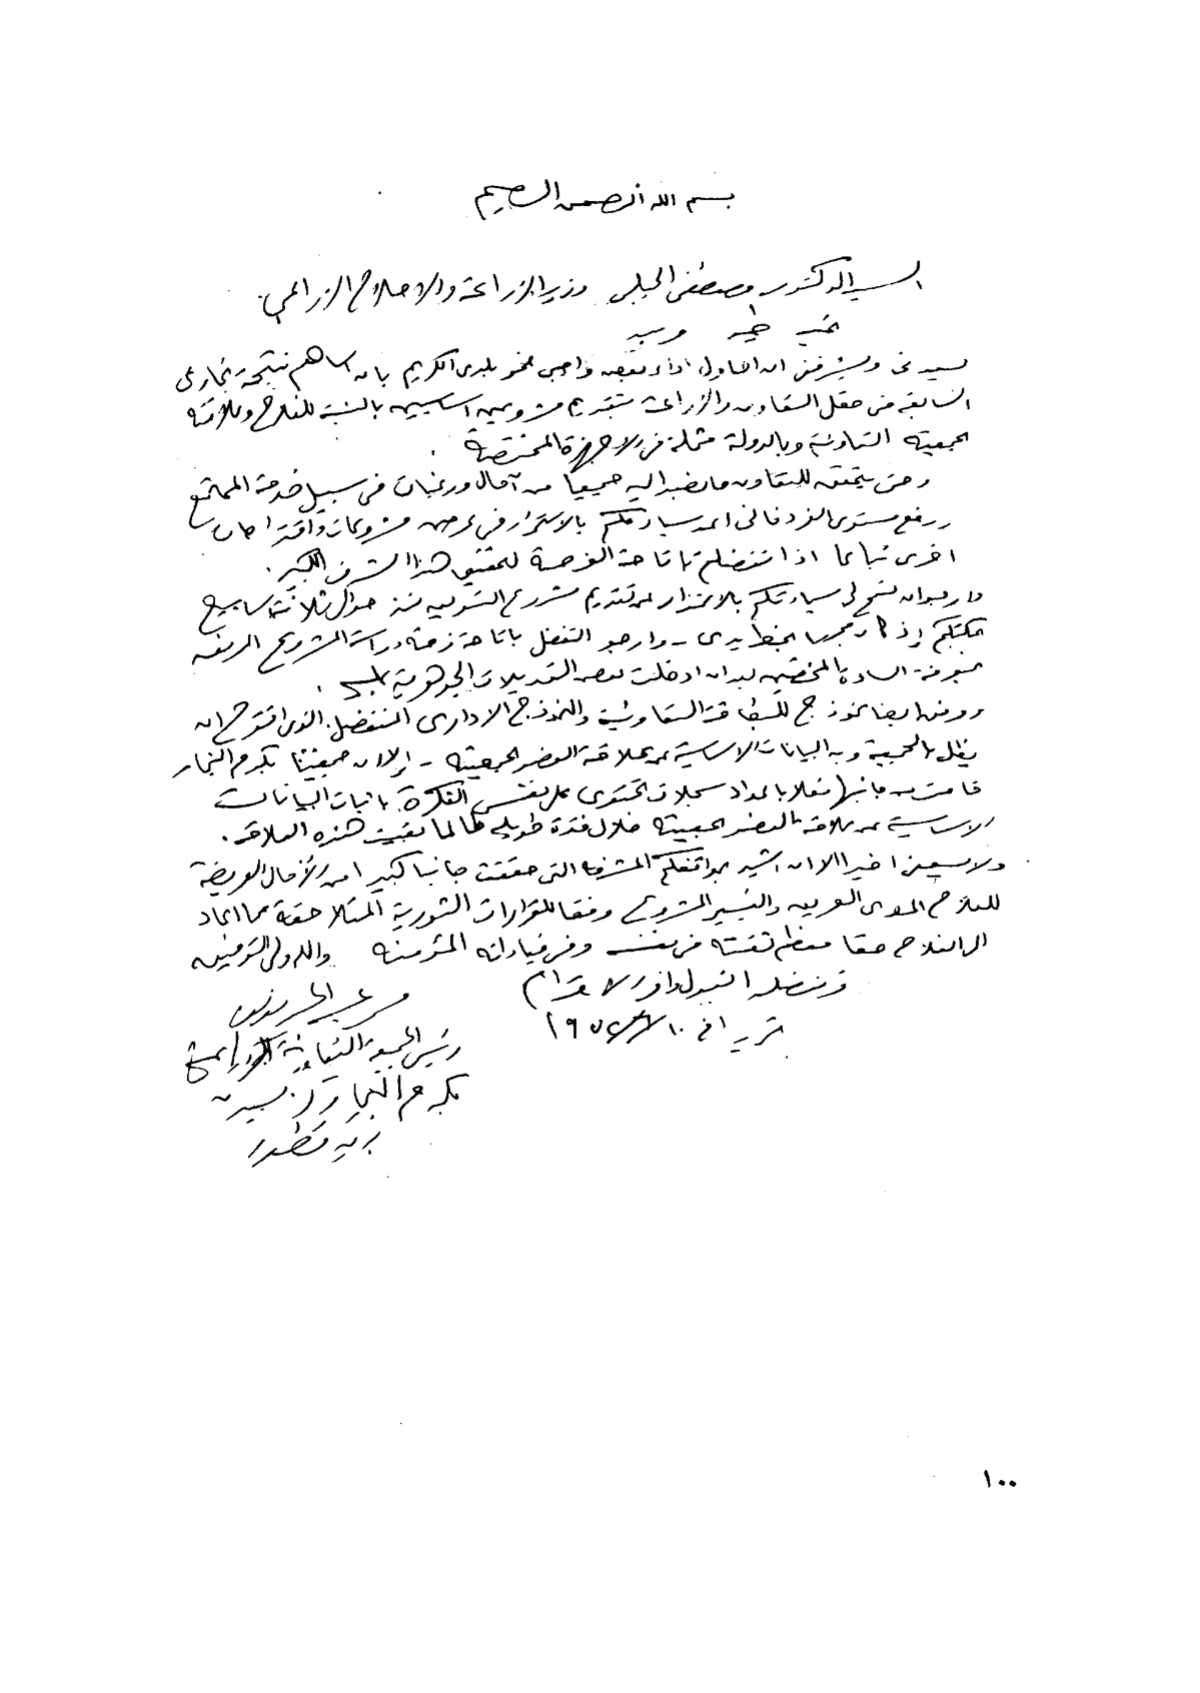 بسم الله الرحمن الرحيم
السيد الدكتور مصطفى الجبلى وزير الزراعة والاصلاح الزراعى
تحية طيبة وبعد
يسعدنى ويشرفنى ان احاول اداء بعض واجبى نحو بلدى الكريم بان اساهم نتيجة تجاربى
السابقة فى حقل التعاون والزراعة بتقديم مشروعين اساسيين بالنسبة للفلاح وعلاقته
بجمعيته التعاونية وبالدولة ممثلة فى الاجهزة المختصة
وحتى يتحقق للتعاون ما نصبو اليه جميعا من آمال ورغبات فى سبيل خدمة المجتمع
ورفع مستوى الفرد فاننى اعد سيادتكم بالاستمرار فى عرض مشروعات واقتراحات
اخرى تباعا اذا تفضلتم باتاحة الفرصة لتحقيق هذا الشرف الكبير .
وارجو ان تسمح لى سيادتكم بالاعتذار عن تقديم مشروع التسويق منذ حوالى ثلاثة اسابيع
لمكتبكم إذ كان محررا بخط يدى - وارجو التفضل باتاحة فرصة دراسة المشروع المرفق
بمعرفة السادة المختصين بعد ان ادخلت بعض التعديلات الجوهرية
ومرفق ايضا نموذج للبطاقة التعاونية والنموذج الادارى المنفصل الذى اقترح ان
يظل بالجمعية وبه البيانات الاساسية عن علاقة العضو بجمعيته - إلا ان جمعيتنا بكرم النجار
قامت من جانبها فعلا باعداد سجلات تحتوى على نفس الفكرة باثبات البيانات
الاساسية عن علاقة العضو بجمعيته خلال فترة طويلة طالما بقيت هذه العلاقة .
ولا يسعنى اخيرا الا ان اشيد بمواقفكم المشرفة التى حققت جانبا كبيرا من الآمال العريضة
للفلاح المصرى العربى والتيسير المشروع وفقا للقرارات الثورية المتلاحقة مما اعاد
الى الفلاح حقا معظم ثقته فى نفسه وفى قياداته المؤمنة والله ولى التوفيق
وتفضلوا بقبول وافر الاحترام
تحريرا فى
رئيس الجمعية التعاونية
بكرم النجار
١٠٠